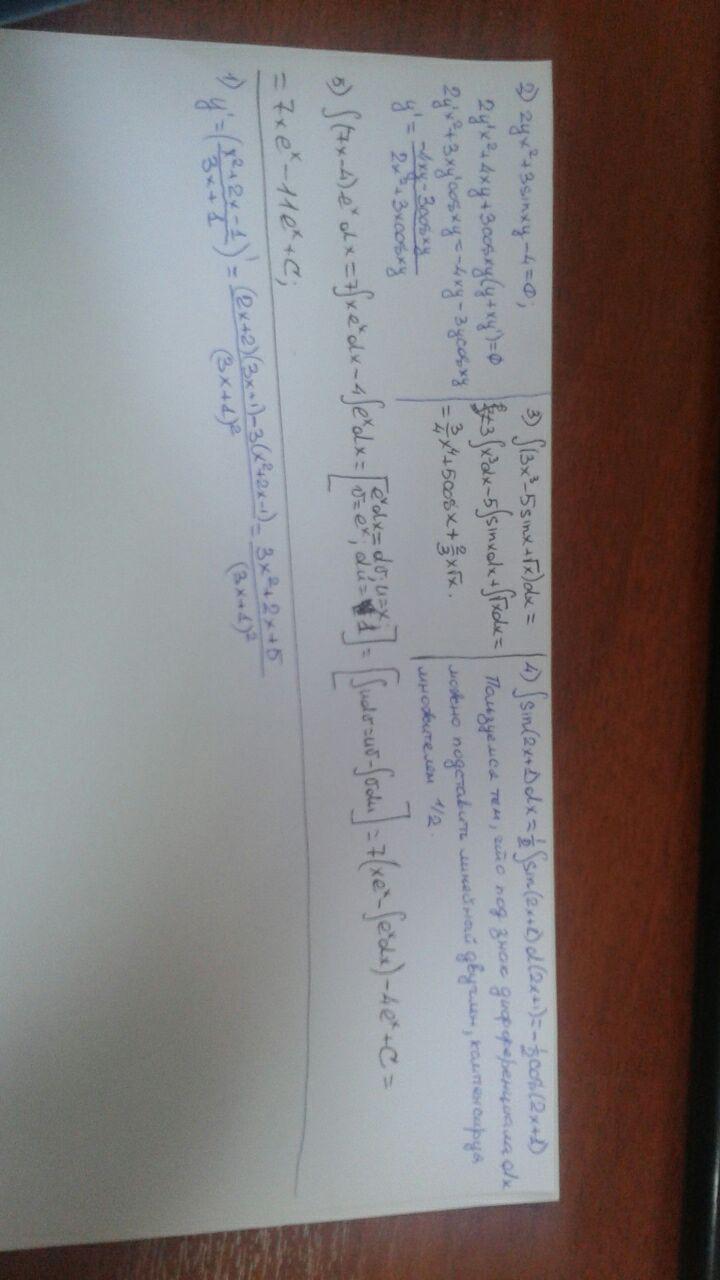 2) 2yx²+3sinxy-4=0;
2y'x²+4xy+3cosxy(y+xy')=0
2y'x²+3xy'cosxy=-4xy-3ycosxy
y'= (-4xy-3cosxy)/(2x²+3xcosxy)
3) ∫(3x³-5sinx+√x)dx=
3∫x³dx-5∫sinxdx+∫√xdx=
= 3/4 x⁴+5cosx+ 2/3 x√x.
4) ∫sin(2x+1)dx= 1/2 ∫sin(2x+1)d(2x+1)=- 1/2 cos(2x+1)
Пользуемся тем, что под знак дифференциала dx
можно подставить линейный двучлен, компенсируя
множителем 1/2.
5) ∫(7x-4)eˣdx=7∫xeˣdx-4∫eˣdx= [eˣdx=dv; u=x; v=eˣ; du=1] = [∫udv=uv-∫vdu] =7(xeˣ-∫eˣdx)-4eˣ+C=
=7xeˣ-11eˣ+C;
1) y'= ((x²+2x-1)/(3x+1))' = ((2x+2)(3x+1)-3(x²+2x-1))/(3x+1)² = (3x²+2x+5)/(3x+1)²